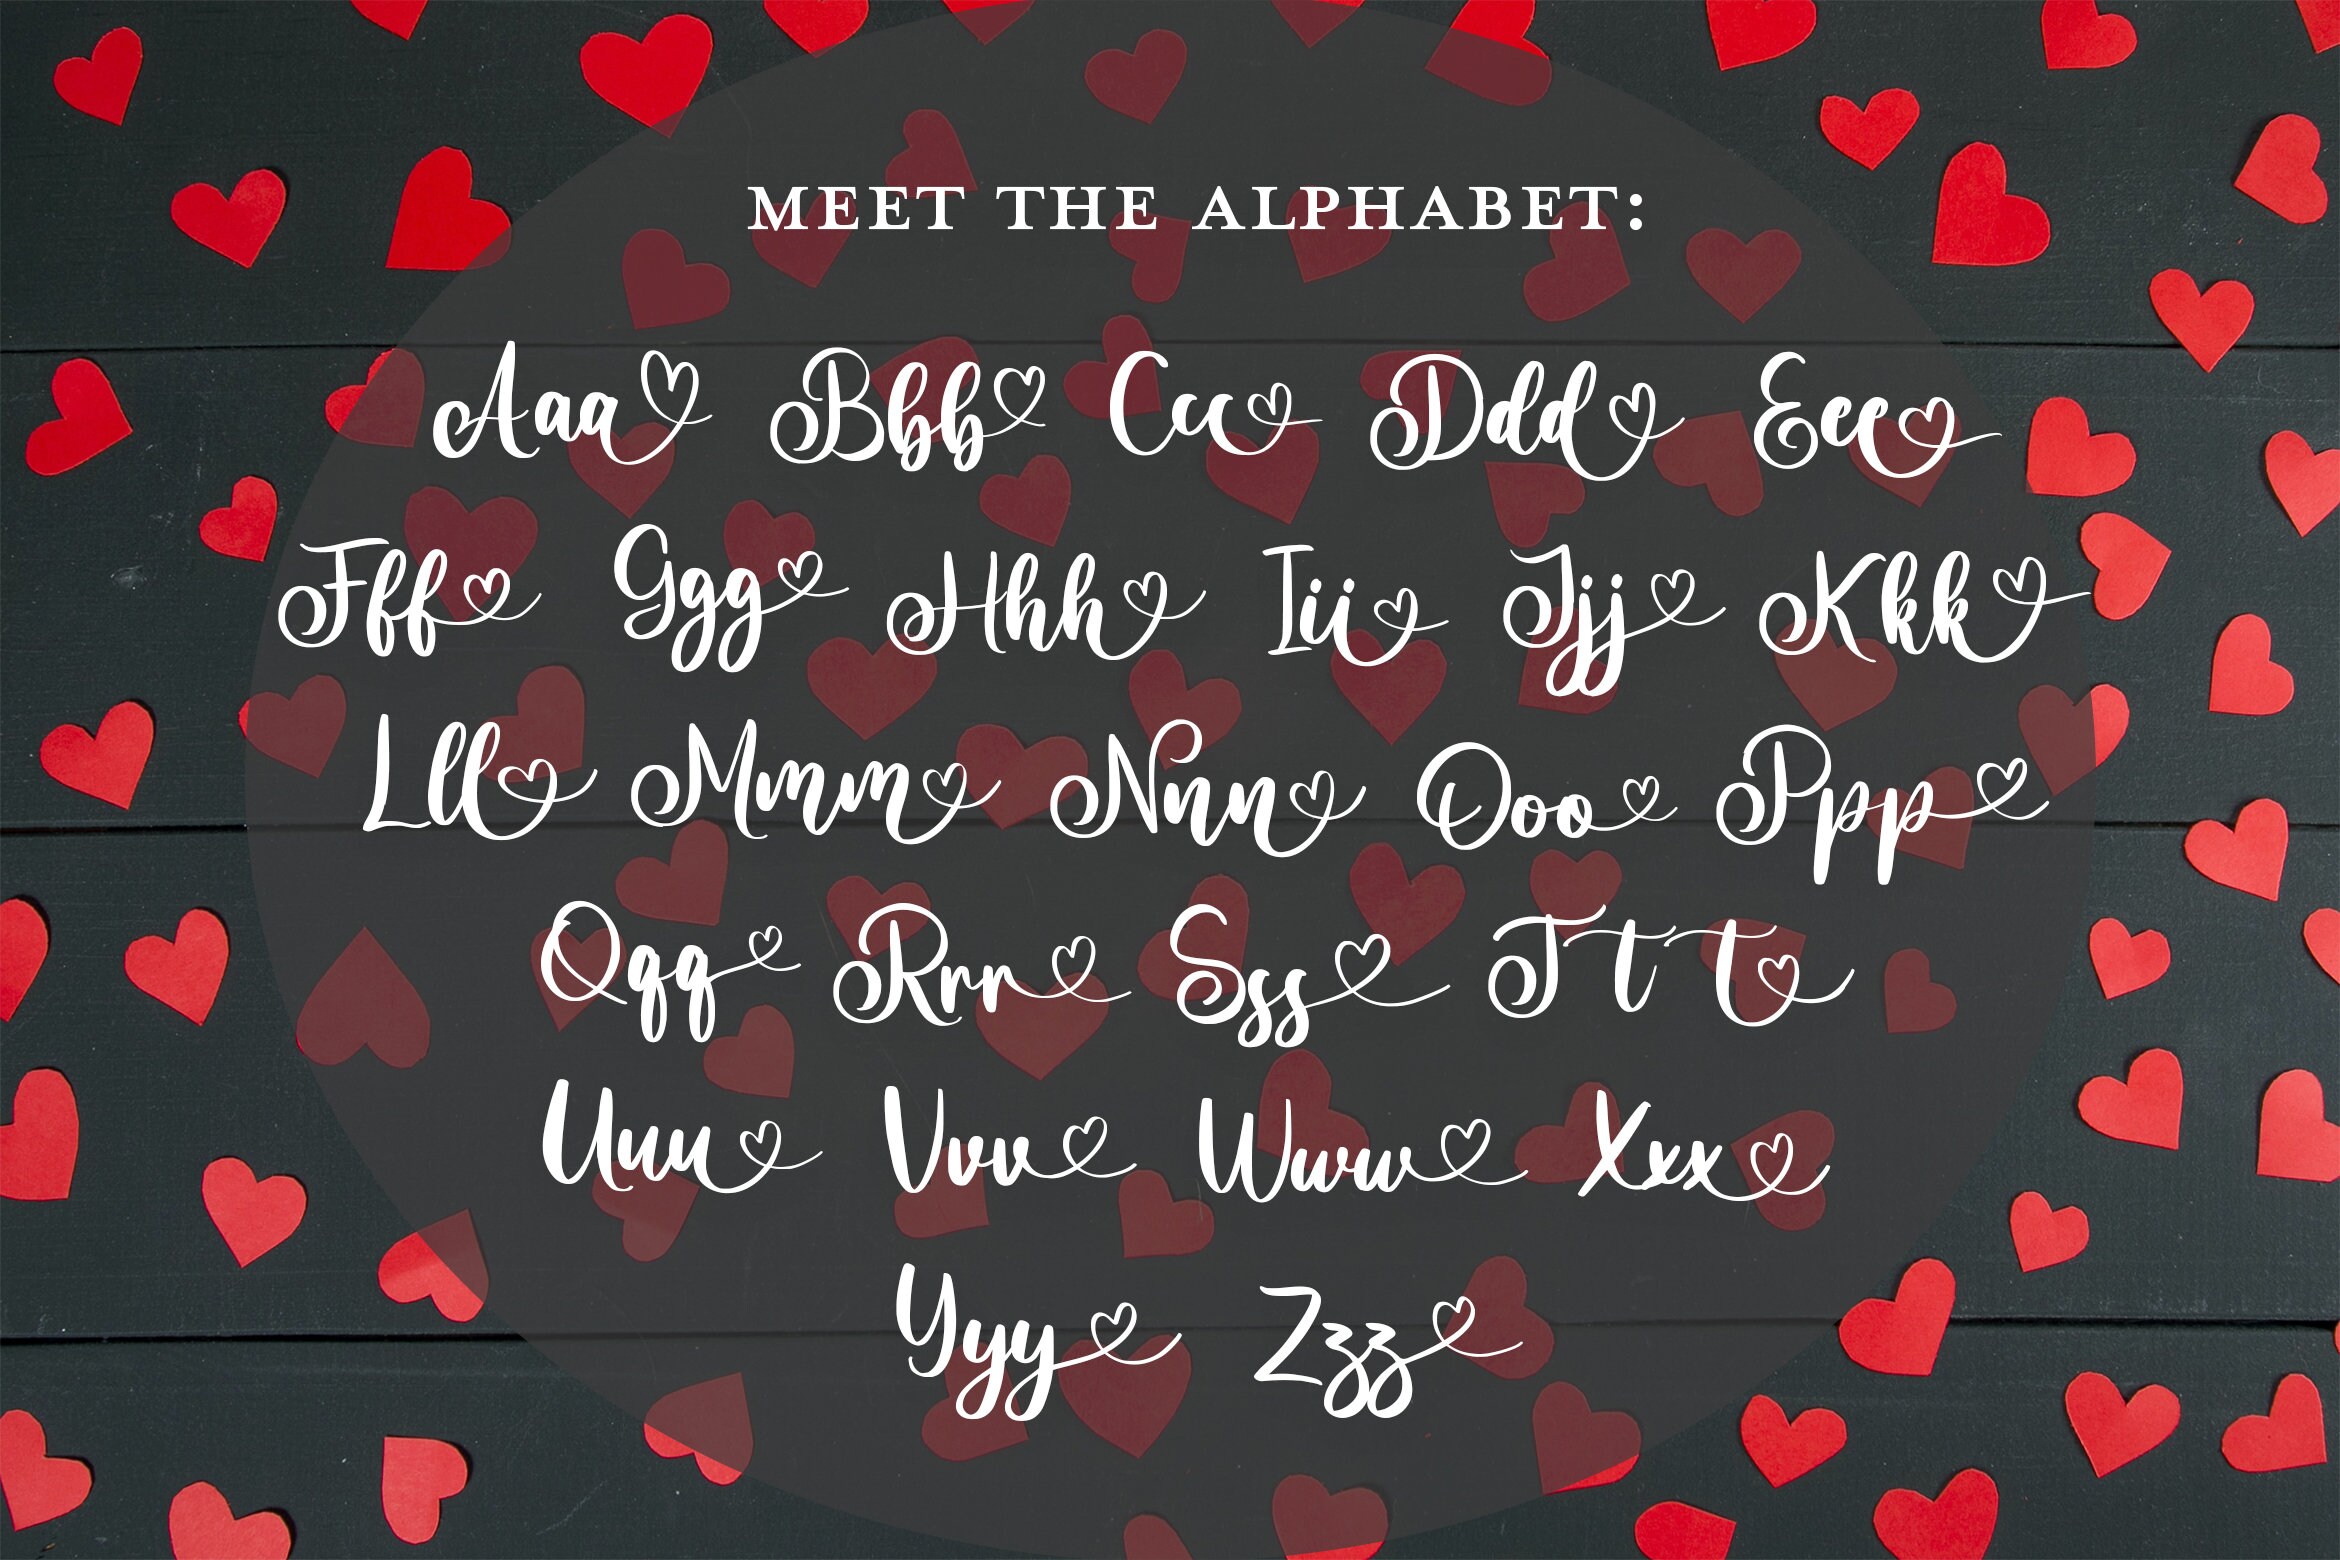 MEET THE ALPHABET:
Aaa Bbb Ccc Ddd Eee
Fff Ggg Hhh Iii Jjj Kkk
Lll Mmm Nnn Ooo Ppp
Qqq Rrr Sss Ttt
Uuu Vvv Www Xxx
Yyy Zzz